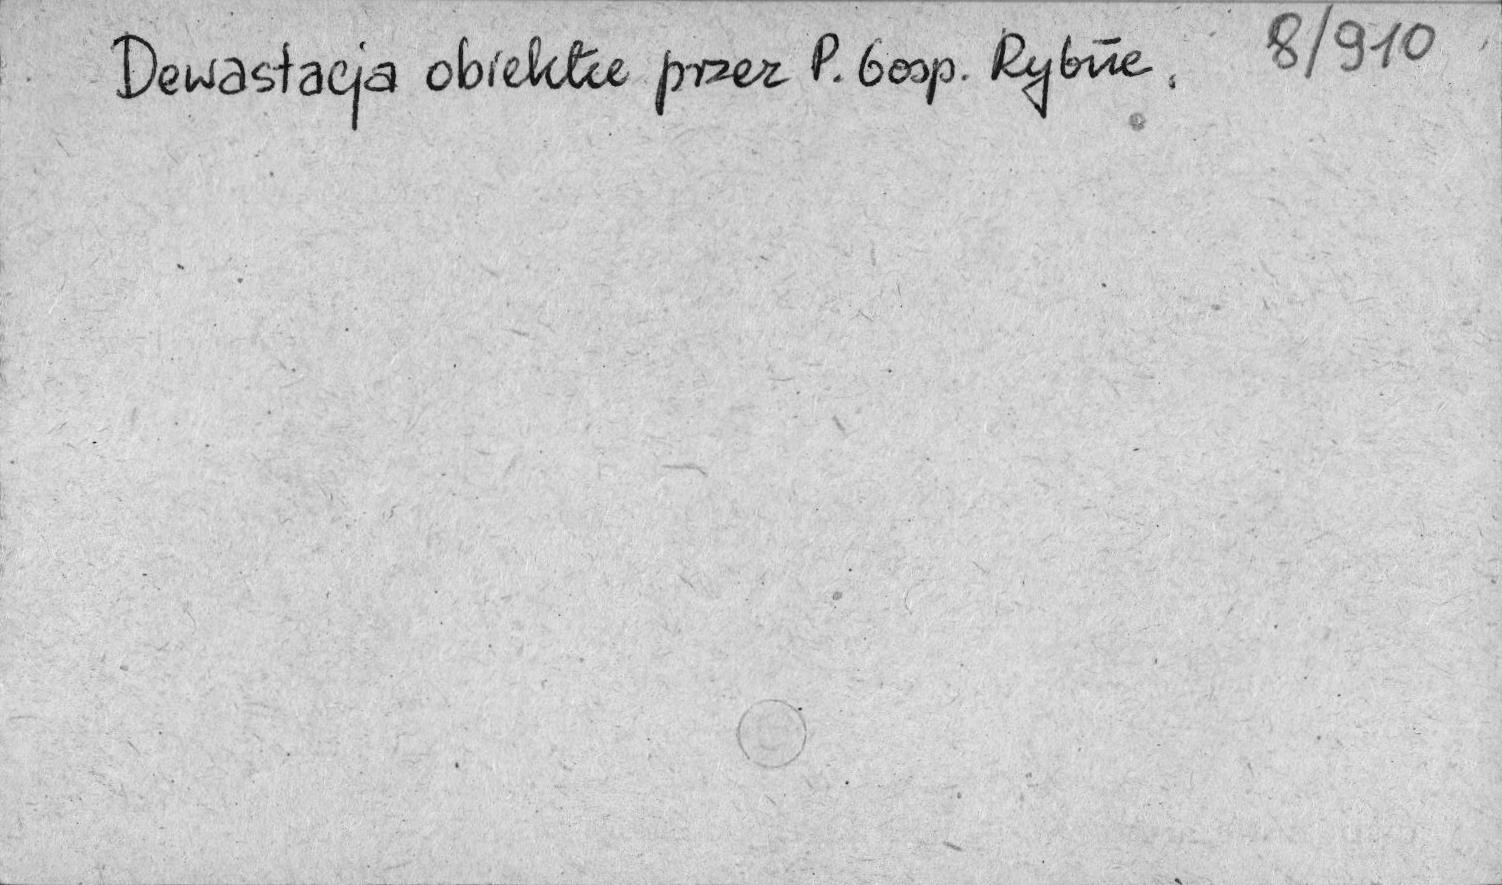 Dewastacja obiektu przez P. Gosp. Rybne. 8/910